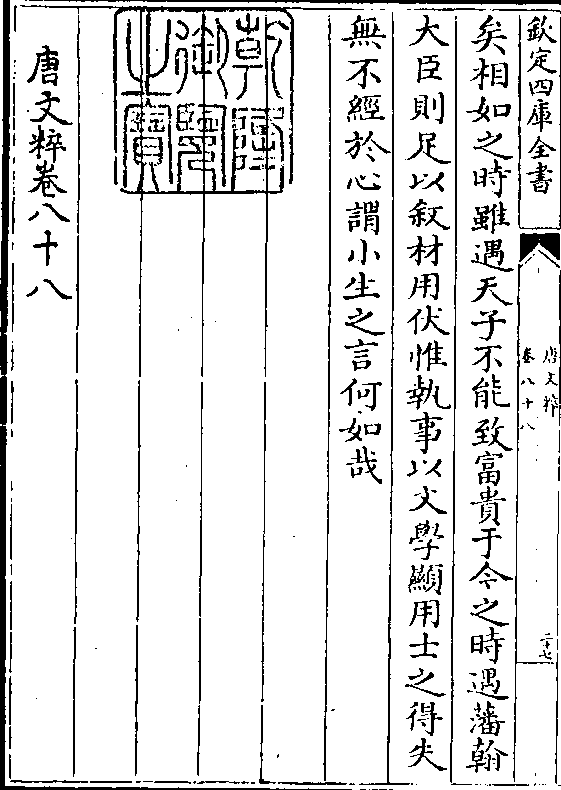 欽定四庫全書
唐文粹
卷八十八
二十七
矣相如之時雖遇天子不能致富貴于今之時遇藩翰
大臣則足以叙材用伏惟執事以文學顯用士之得失
無不經於心謂小生之言何如哉
乾隆
御覽
之寶
唐文粹卷八十八